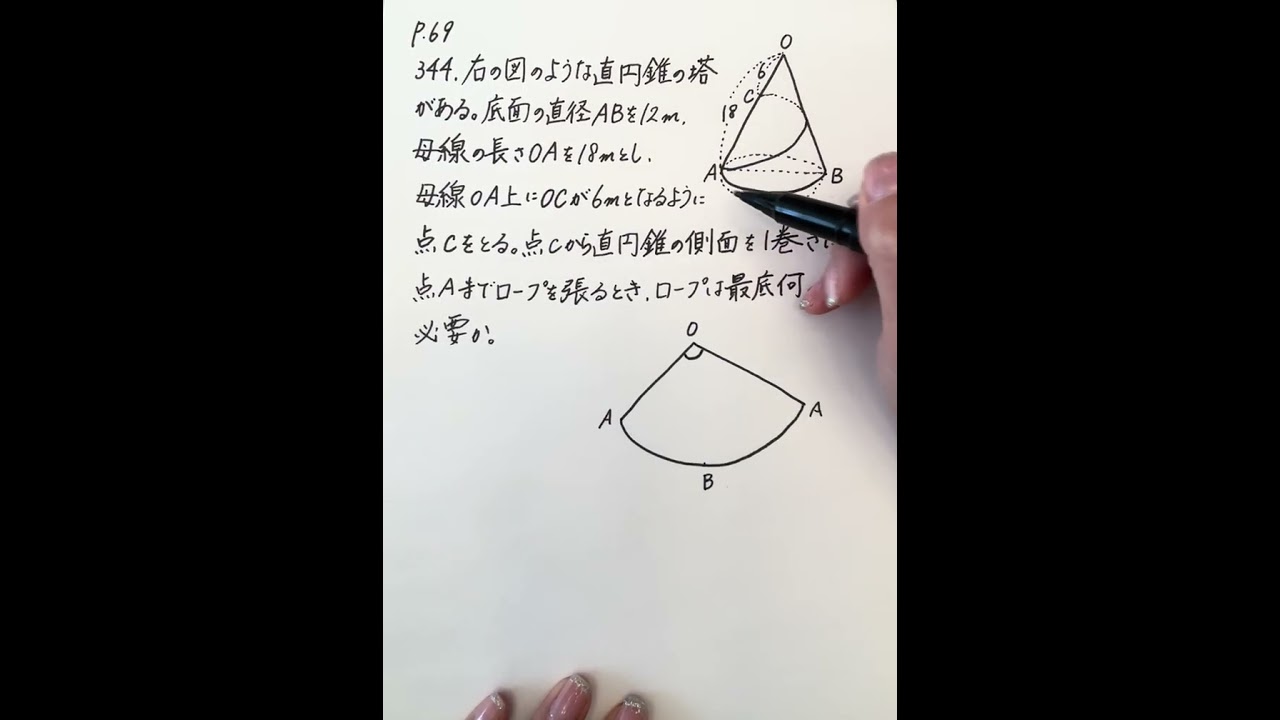 P.69
344. 右の図のような直円錐の塔
がある。底面の直径ABを12m,
母線の長さOAを18mとし、
母線OA上にOCが6mとなるように
点Cをとる。点Cから直円錐の側面を1巻き
点Aまでロープを張るとき、ロープは最底何
必要か。
O
6
C
18
A
B
O
A
A
B